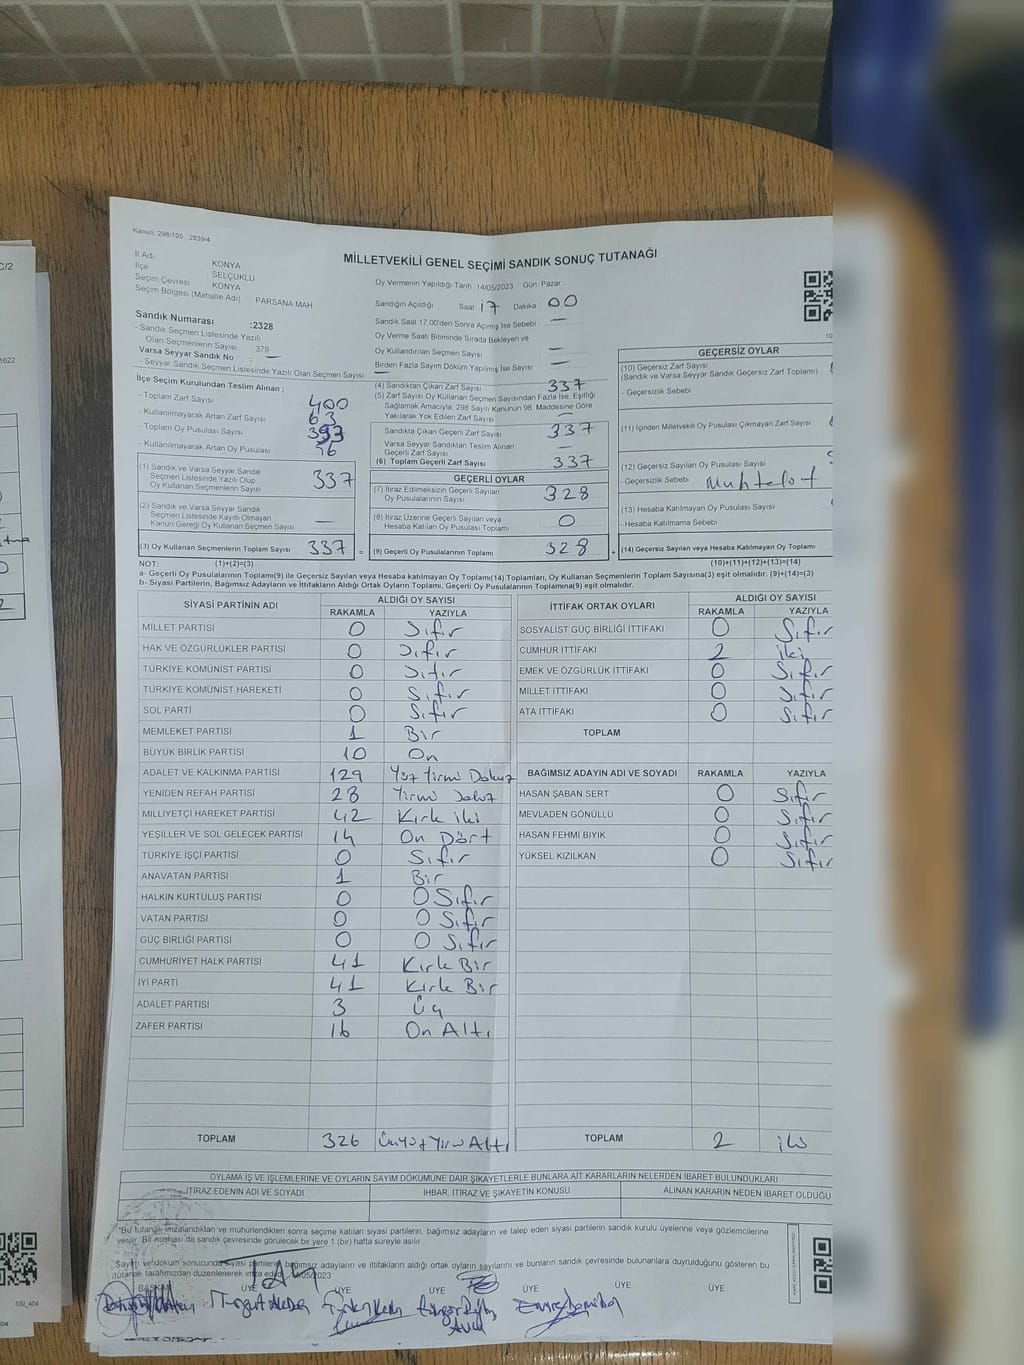 Kanun: 298/105 , 2839/4
MİLLETVEKİLİ GENEL SEÇİMİ SANDIK SONUÇ TUTANAĞI
İl Adı KONYA
İlçe SELÇUKLU
Seçim Çevresi KONYA
Seçim Bölgesi (Mahalle Adı) PARSANA MAH
Sandık Numarası :2328
- Sandık Seçmen Listesinde Yazılı
Olan Seçmenlerin Sayısı 379
Varsa Seyyar Sandık No : —
- Seyyar Sandık Seçmen Listesinde Yazılı Olan Seçmen Sayısı —
Oy Vermenin Yapıldığı Tarih :14/05/2023 Gün: Pazar
Sandığın Açıldığı Saat 17 Dakika 00
Sandık Saat 17.00'den Sonra Açımış İse Sebebi : —
Oy Verme Saati Bitiminde Sırada Bekleyen ve
Oy Kullandırılan Seçmen Sayısı —
Birden Fazla Sayım Döküm Yapılmış İse Sayısı —
İlçe Seçim Kurulundan Teslim Alınan :
- Toplam Zarf Sayısı 400
- Kullanılmayarak Artan Zarf Sayısı 63
- Toplam Oy Pusulası Sayısı
- Kullanılmayarak Artan Oy Pusulası
(1) Sandık ve Varsa Seyyar Sandık
Seçmen Listesinde Yazılı Olup
Oy Kullanan Seçmenlerin Sayısı 337
(2) Sandık ve Varsa Seyyar Sandık
Seçmen Listesinde Kayıtlı Olmayan
Kanun Gereği Oy Kullanan Seçmen Sayısı —
(3) Oy Kullanan Seçmenlerin Toplam Sayısı 337 =
(4) Sandıktan Çıkan Zarf Sayısı 337
(5) Zarf Sayısı Oy Kullanan Seçmen Sayısından Fazla İse, Eşitliği
Sağlamak Amacıyla, 298 Sayılı Kanunun 98. Maddesine Göre
Yakılarak Yok Edilen Zarf Sayısı —
Sandıkta Çıkan Geçerli Zarf Sayısı 337
Varsa Seyyar Sandıktan Teslim Alınan
Geçerli Zarf Sayısı —
(6) Toplam Geçerli Zarf Sayısı 337
GEÇERLİ OYLAR
(7) İtiraz Edilmeksizin Geçerli Sayılan
Oy Pusulalarının Sayısı 328
(8) İtiraz Üzerine Geçerli Sayılan veya
Hesaba Katılan Oy Pusulası Toplamı 0
(9) Geçerli Oy Pusulalarının Toplamı 328 +
GEÇERSİZ OYLAR
(10) Geçersiz Zarf Sayısı
(Sandık ve Varsa Seyyar Sandık Geçersiz Zarf Toplamı)
- Geçersizlik Sebebi
(11) İçinden Milletvekili Oy Pusulası Çıkmayan Zarf Sayısı
(12) Geçersiz Sayılan Oy Pusulası Sayısı
- Geçersizlik Sebebi
(13) Hesaba Katılmayan Oy Pusulası Sayısı
- Hesaba Katılmama Sebebi
(14) Geçersiz Sayılan veya Hesaba Katılmayan Oy Pusulası Toplamı
NOT: (1)+(2)=(3) (10)+(11)+(12)+(13)=(14)
a- Geçerli Oy Pusulalarının Toplamı(9) ile Geçersiz Sayılan veya Hesaba katılmayan Oy Toplamı(14) Toplamları, Oy Kullanan Seçmenlerin Toplam Sayısına(3) eşit olmalıdır. (9)+(14)=(3)
b- Siyasi Partilerin, Bağımsız Adayların ve İttifakların Aldığı Oy Sayıları Toplamı, Geçerli Oy Pusulalarının Toplamına(9) eşit olmalıdır.
SİYASİ PARTİNİN ADI ALDIĞI OY SAYISI
RAKAMLA YAZIYLA
MİLLET PARTİSİ 0 Sıfır
HAK VE ÖZGÜRLÜKLER PARTİSİ 0 Sıfır
TÜRKİYE KOMÜNİST PARTİSİ 0 Sıfır
TÜRKİYE KOMÜNİST HAREKETİ 0 Sıfır
SOL PARTİ 0 Sıfır
MEMLEKET PARTİSİ 1 Bir
BÜYÜK BİRLİK PARTİSİ 10 On
ADALET VE KALKINMA PARTİSİ 129 Yüz Yirmi Dokuz
YENİDEN REFAH PARTİSİ 28 Yirmi
MİLLİYETÇİ HAREKET PARTİSİ 42 Kırk iki
YEŞİLLER VE SOL GELECEK PARTİSİ 14 On Dört
TÜRKİYE İŞÇİ PARTİSİ 0 Sıfır
ANAVATAN PARTİSİ 1 Bir
HALKIN KURTULUŞ PARTİSİ 0 0 Sıfır
VATAN PARTİSİ 0 0 Sıfır
GÜÇ BİRLİĞİ PARTİSİ 0 0 Sıfır
CUMHURİYET HALK PARTİSİ 41 Kırk Bir
İYİ PARTİ 41 Kırk Bir
ADALET PARTİSİ 3 Üç
ZAFER PARTİSİ 16 On Altı
TOPLAM 326 Üçyüz Yirmi Altı
İTTİFAK ORTAK OYLARI ALDIĞI OY SAYISI
RAKAMLA YAZIYLA
SOSYALİST GÜÇ BİRLİĞİ İTTİFAKI 0 Sıfır
CUMHUR İTTİFAKI 2 iki
EMEK VE ÖZGÜRLÜK İTTİFAKI 0 Sıfır
MİLLET İTTİFAKI 0 Sıfır
ATA İTTİFAKI 0 Sıfır
TOPLAM
BAĞIMSIZ ADAYIN ADI VE SOYADI RAKAMLA YAZIYLA
HASAN ŞABAN SERT 0 Sıfır
MEVLADEN GÖNÜLLÜ 0 Sıfır
HASAN FEHMİ BIYIK 0 Sıfır
YÜKSEL KIZILKAN 0 Sıfır
TOPLAM 2 iki
OYLAMA İŞ VE İŞLEMLERİNE VE OYLARIN SAYIM DÖKÜMÜNE DAİR ŞİKAYETLERLE BUNLARA AİT KARARLARIN NELERDEN İBARET BULUNDUKLARI
İTİRAZ EDENİN ADI VE SOYADI İHBAR, İTİRAZ VE ŞİKAYETİN KONUSU ALINAN KARARIN NEDEN İBARET OLDUĞU
*Bu tutanak imzalandıktan ve mühürlendikten sonra seçime katılan siyasi partilerin, bağımsız adayların ve talep eden siyasi partilerin sandık kurulu üyelerine veya gözlemcilerine
verilir. Bir nüshası da sandık çevresinde görülecek bir yere 1 (bir) hafta süreyle asılır
Sayım ve döküm sonucunda siyasi partilerin, bağımsız adayların ve ittifakların aldığı ortak oyların sayılarını ve bunların sandık çevresinde bulunanlara duyrulduğunu gösteren bu
tutanak tarafımızdan düzenlenerek imza edildi. 14/05/2023
BAŞKAN ÜYE ÜYE ÜYE ÜYE ÜYE ÜYE
SSI_404